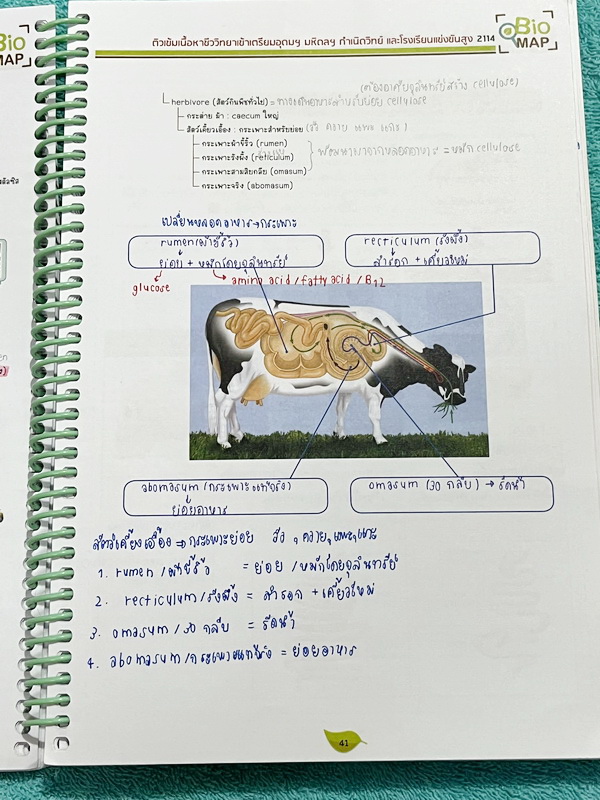 Bio
MAP
ติวเข้มเนื้อหาชีววิทยาเข้าเตรียมอุดมฯ มหิดลฯ กำเนิดวิทย์ และโรงเรียนแข่งขันสูง 2114
Bio
MAP
(ต้องอาศัยจุลินทรีย์สร้าง cellulose)
herbivore (สัตว์กินพืชทั่วไป) = ทางเดินอาหารสำหรับย่อย cellulose
กระต่าย ม้า : caecum ใหญ่
สัตว์เคี้ยวเอื้อง : กระเพาะสำหรับย่อย (วัว ควาย แพะ แกะ)
กระเพาะผ้าขี้ริ้ว (rumen)
กระเพาะรังผึ้ง (reticulum)
= หมัก cellulose
กระเพาะสามสิบกลีบ (omasum)
กระเพาะจริง (abomasum)
เปลี่ยนหลอดอาหาร→กระเพาะ
rumen (ผ้าขี้ริ้ว)
ย่อย + หมักโดยจุลินทรีย์
recticulum (รังผึ้ง)
สำรอก + เคี้ยวใหม่
glucose
amino acid / fatty acid / B12
abomasum (กระเพาะแท้จริง)
ย่อยอาหาร
omasum (30 กลีบ) → รีดน้ำ
สัตว์เคี้ยวเอื้อง → กระเพาะย่อย วัว, ควาย, แพะ, แกะ
1. rumen / ผ้าขี้ริ้ว = ย่อย / หมักโดยจุลินทรีย์
2. recticulum / รังผึ้ง = สำรอก + เคี้ยวใหม่
3. omasum / 30 กลีบ = รีดน้ำ
4. abomasum / กระเพาะแท้จริง = ย่อยอาหาร
41